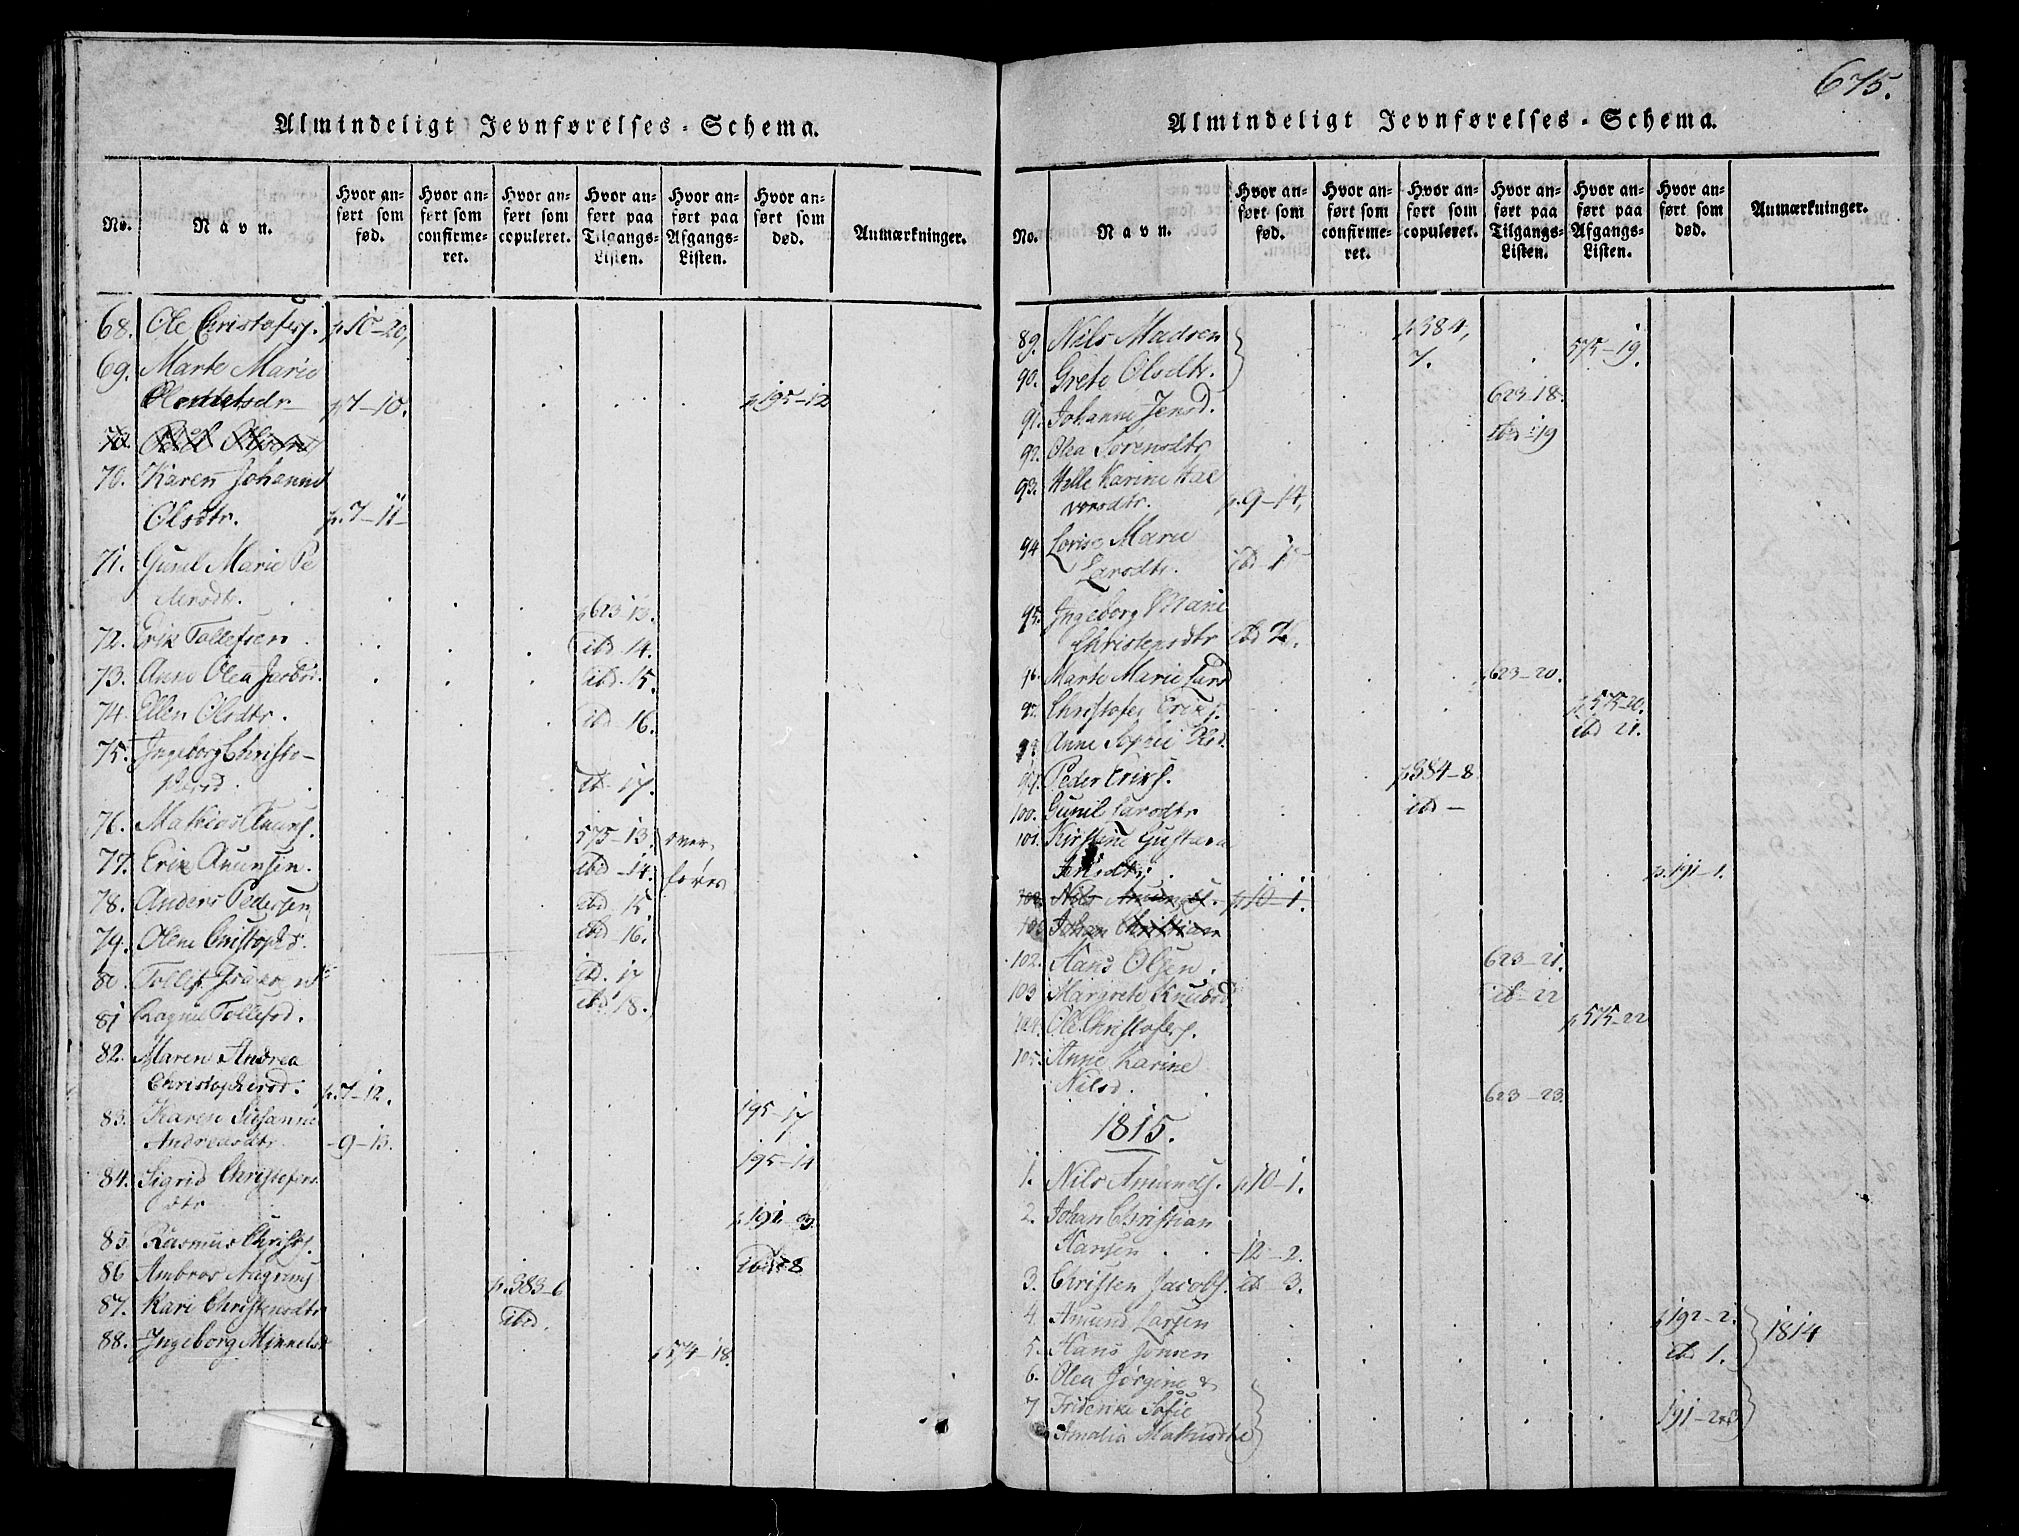 675.
Almindeligt Jevnførelses-Schema.
No. Navn. Hvor anført som fød. Hvor anført som confirmeret. Hvor anført som copuleret. Hvor anført paa Tilgangs-Listen. Hvor anført paa Afgangs-Listen. Hvor anført som død. Anmærkninger.
68. Ole Christofers. p.10-20,
69. Marte Marie
Olomelsdr p7-10. p195-12
70. Karen Johanne
Olsdtr. p.7-11-
71. Gunil Marie Pe
dersdtr. p623-13.
72. Erik Tollefsen ibd 14.
73. Anne Olea Jacobsd. ibid-15.
74. Ellen Olsdtr. ibd 16.
75. Ingeborg Christo-
phersd. ib-17.
76. Mathias Knuds. 575-13. over
77. Erik Amunsen. ibid-14. føres
78. Anders Pedersen ibd 15
79. Olene Christophsd. ibd-16.
80. Tollef ibd. 17
81 Ragne Tollefsd. ibd 18.
82. Maren Andrea
Christophersd. p.7-12. 195-17
83. Karen Susanne
Andreasdtr. -9-13. 195-14
84. Sigrid Christofers
Odtr p192-3.
85. Rasmus Christs. ibid 8
86 Ambros p.383-6
87. Kari Christensdtr ibd.
88. Ingeborg Minnelsd p574-18.
Almindeligt Jevnførelses-Schema.
No. Navn. Hvor anført som fød. Hvor anført som confirmeret. Hvor anført som copuleret. Hvor anført paa Tilgangs-Listen. Hvor anført paa Afgangs-Listen. Hvor anført som død. Anmærkninger.
89. Nils Madsen p384,
90. Grete Olsdtr. 7. 575-19.
91. Johanne Jensd. 623-18.
92. Olea Sørensdtr ibd-19
93. Helle Karine Hal
vorsdtr. p.9-14,
94 Lovise Marie
Larsdtr. ibd-15
95. Ingeborg Marie
Christensdtr ibd
96. Marte Marie Larsd 623-20.
97. Christofer Eriks. p575-20.
98 Anne Sophie Olsd. ibd 21.
99. Peder Eriks. p384-8
100. Gunil Larsdtr ibd-
101. Kirstine Gustava
Jensdtr. p.191-1.
102. Nils Amunds. p10-1.
Johan Christian
102. Hans Olsen. 623-21.
103 Margrete Knudsd ib-22
104. Ole Christofers. p575-22
105. Anne Karine
Nilsd. 623-23.
1815.
1. Nils Amunds. p10-1.
2. Johan Christian
Hansen -12-2.
3. Christen Jacobs. ib-3.
4. Amund Larsen p192-2. 1814
5. Hans Jonsen ibd 1.
6. Olea Jørgine &
7 Friderike Sofie 191-2&3
Amalia Mathisdtre